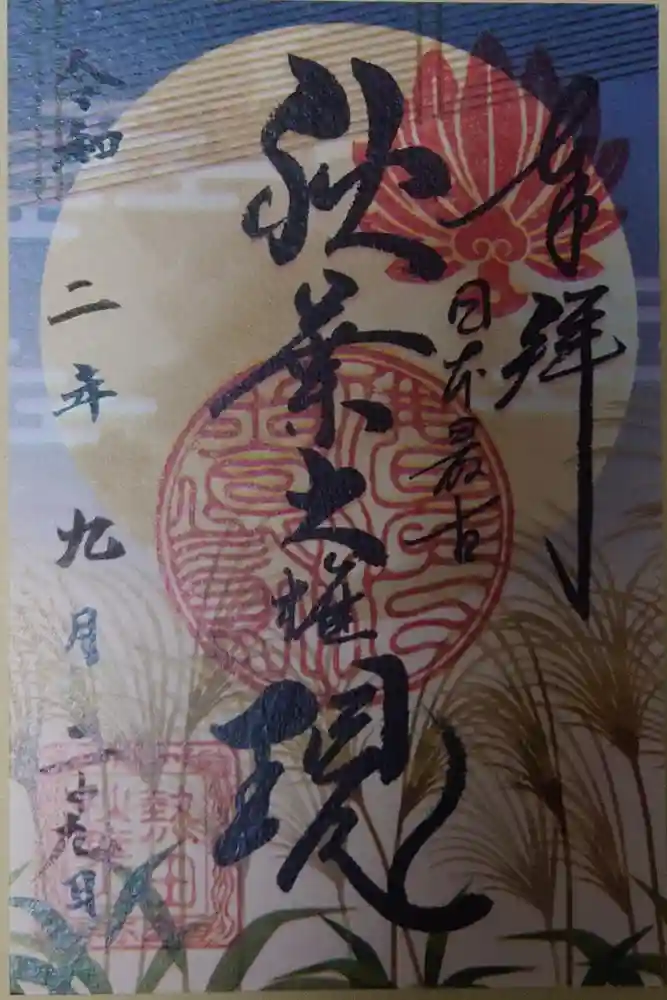 奉拝
日本最古
秋葉大権現
令和二年九月二十九日
熱田